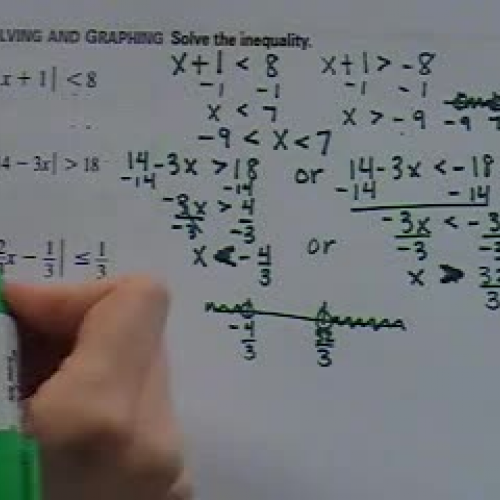 LVING AND GRAPHING Solve the inequality.
x + 1| < 8
x+1 < 8
x+1 > -8
-1 -1
-1 -1
x < 7
x > -9
-9 7
-9 < x < 7
4 - 3x| > 18
14-3x > 18 or 14-3x < -18
-14 -14
-14 -14
-3x > 4
-3x < -3
-3 -3
-3 -3
x < -4/3 or x > 32/3
x - 1/3| ≤ 1/3
-4/3 32/3